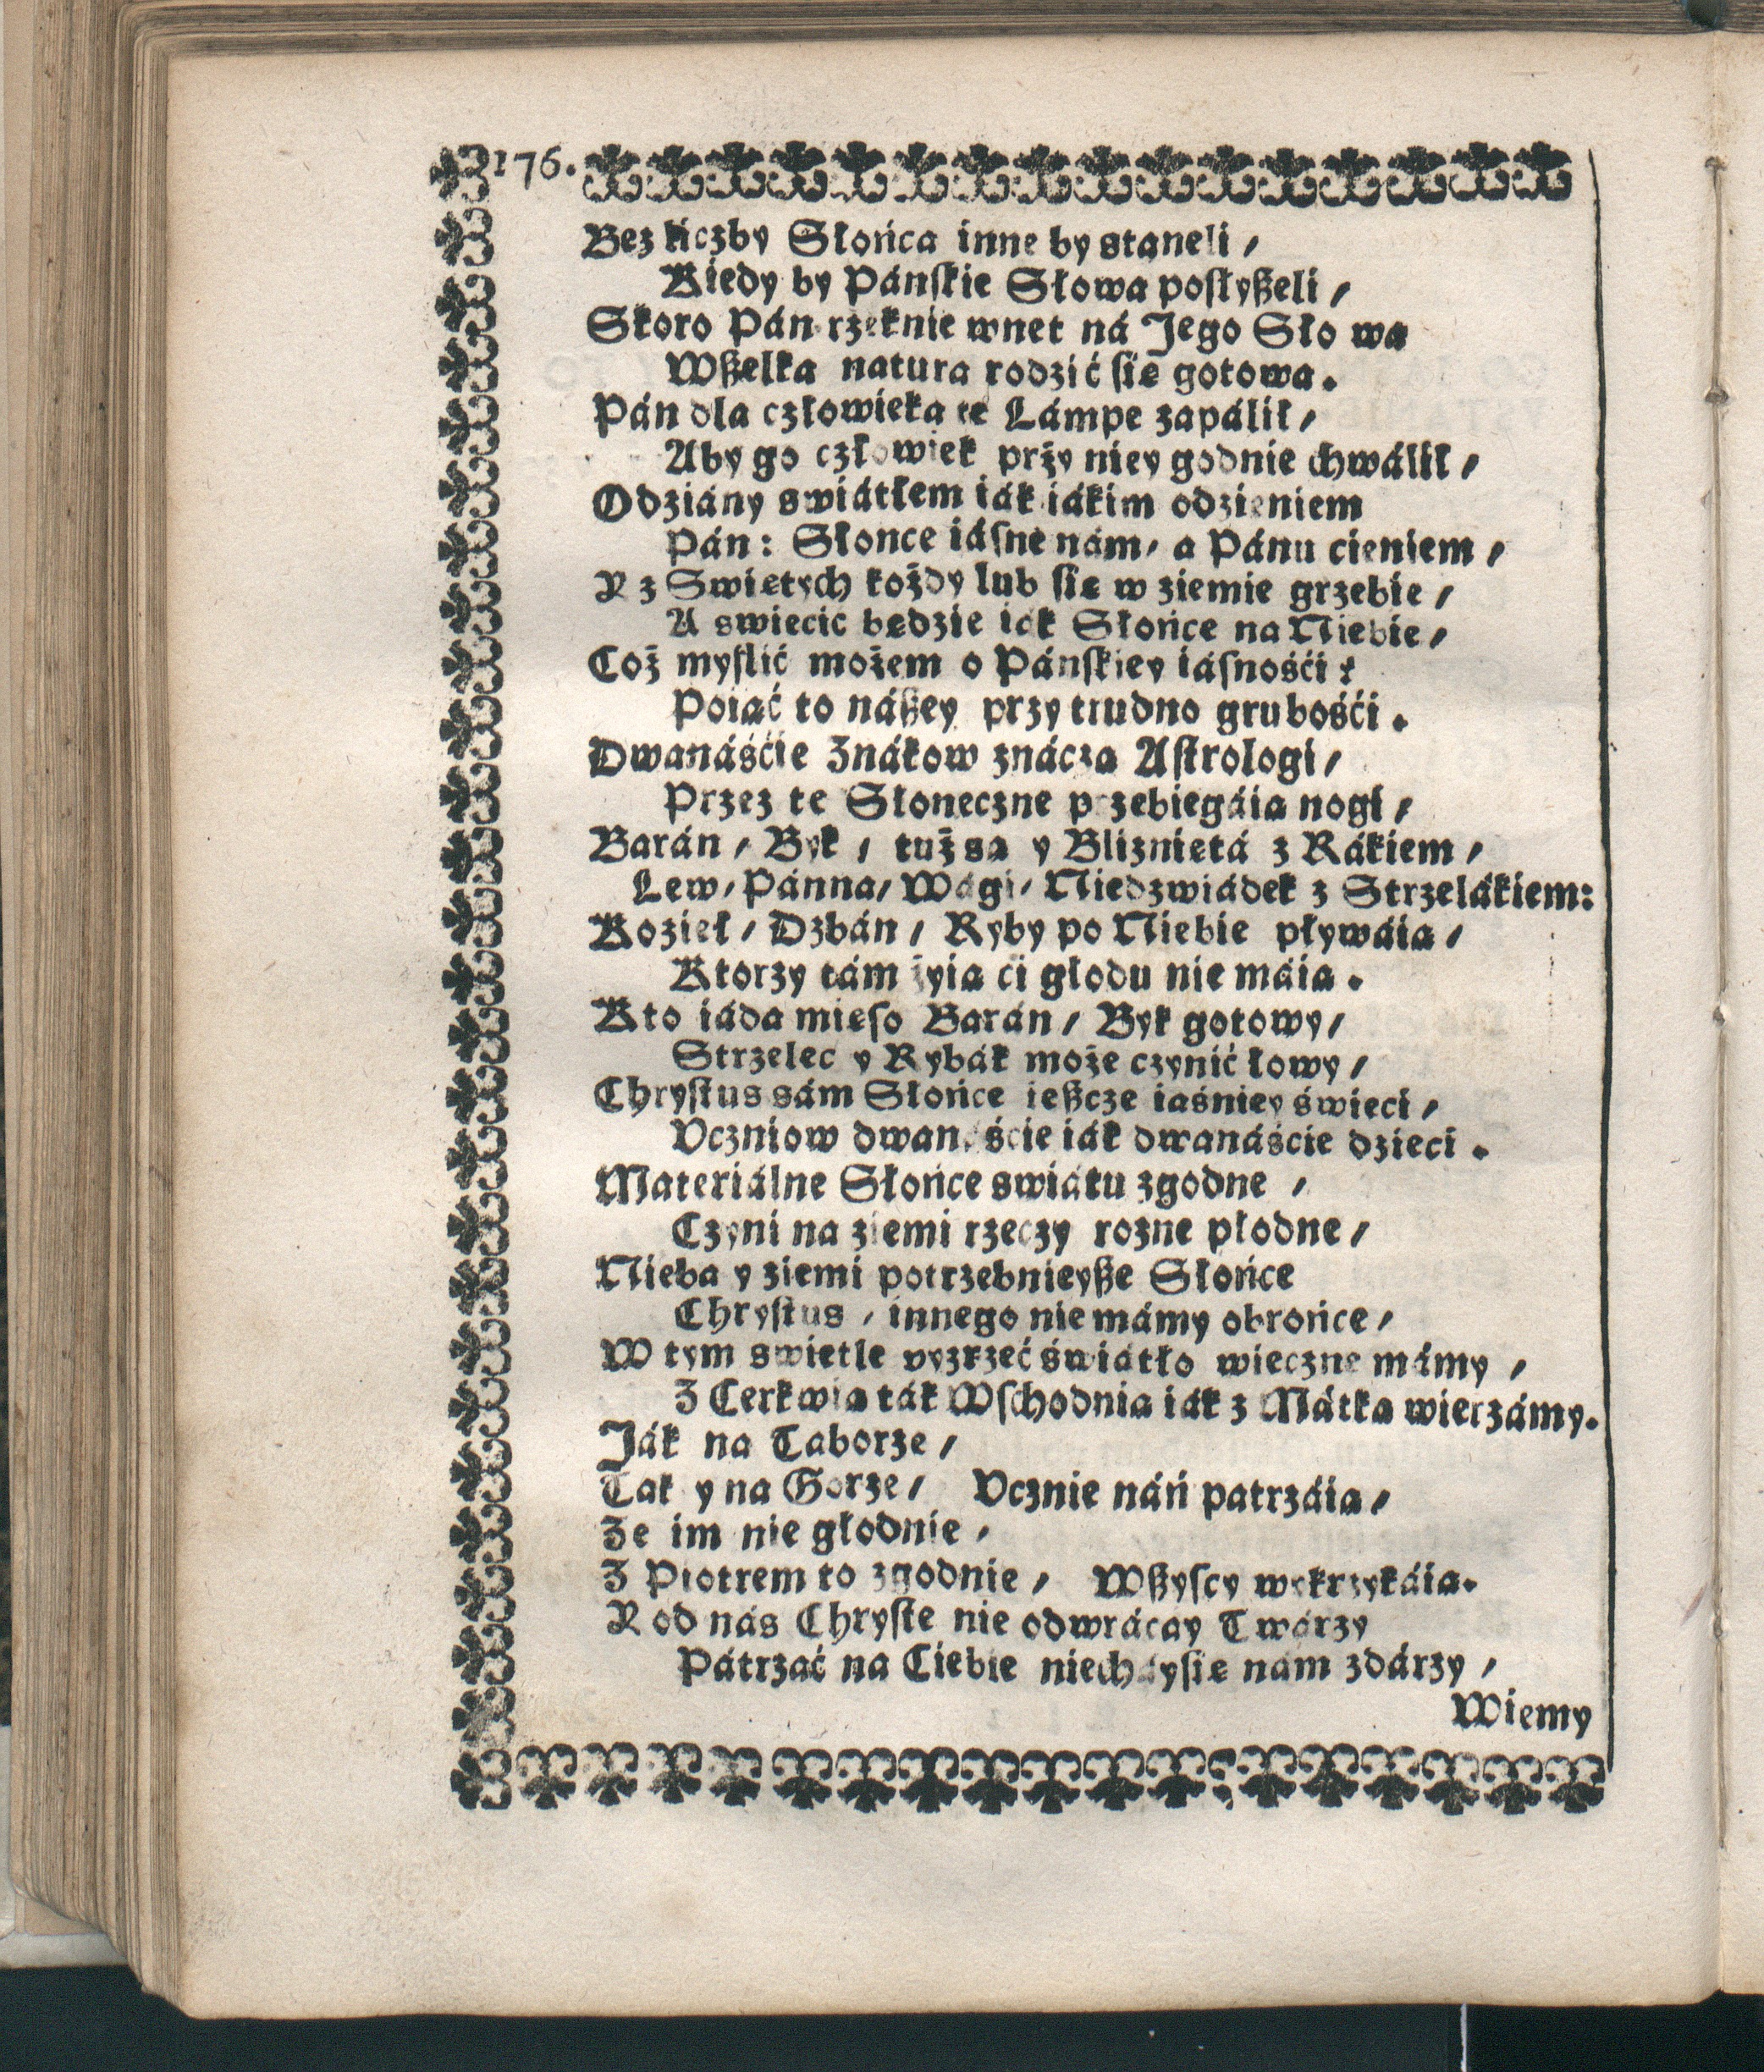 176.
Bez liczby Słońca inne by staneli /
Kiedy by Pánſkie Słowa poſłyßeli /
Skoro Pán rzeknie wnet ná Jego Sło wa
Wßelka natura rodzić ſie gotowa.
Pán dla człowieka te Lámpe zapálił /
Aby go człowiek prży niey godnie chwálił /
Odziány swiátłem iák iákim odzieniem
Pán: Słonce iáſne nám / a Pánu cieniem /
Y z Swietych kożdy lub ſie w ziemie grzebie /
A swiecić bedzie iák Słońce na Niebie /
Coż myſlić możem o Pánſkiey iáſnośći?
Poiać to náßey przy trudno grubośći.
Dwanáśćie Znákow znácza Aſtrologi /
Przez te Słoneczne przebiegáia nogi /
Barán / Byk / tuż sa y Blizniętá z Rákiem /
Lew / Pánna / Wági / Niedzwiádek z Strzelákiem:
Kozieł / Dzbán / Ryby po Niebie pływáia /
Ktorzy tám żyia ci głodu nie máia.
Kto iáda mieſo Barán / Byk gotowy /
Strzelec y Rybák może czynić łowy /
Chryſtus sám Słońce ießcze iaśniey świeci /
Vczniow dwanáście iák dwanáście dzieci.
Materiálne Słońce swiátu zgodne /
Czyni na ziemi rzeczy rozne płodne /
Nieba y ziemi potrzebnieyße Słońce
Chryſtus / innego nie mámy obrońce /
W tym swietle vyzrzeć świátło wieczne mámy /
Z Cerkwia ták Wſchodnia iák z Mátka wierzámy.
Ják na Taborze /
Tak y na Gorze / Vcznie náń patrzáia /
Ze im nie głodnie /
Z Piotrem to zgodnie / Wßyſcy wykrzykáia.
Y od nás Chryſte nie odwrácay Twárzy
Pátrzać na Ciebie niecháyſie nám zdárzy /
Wiemy